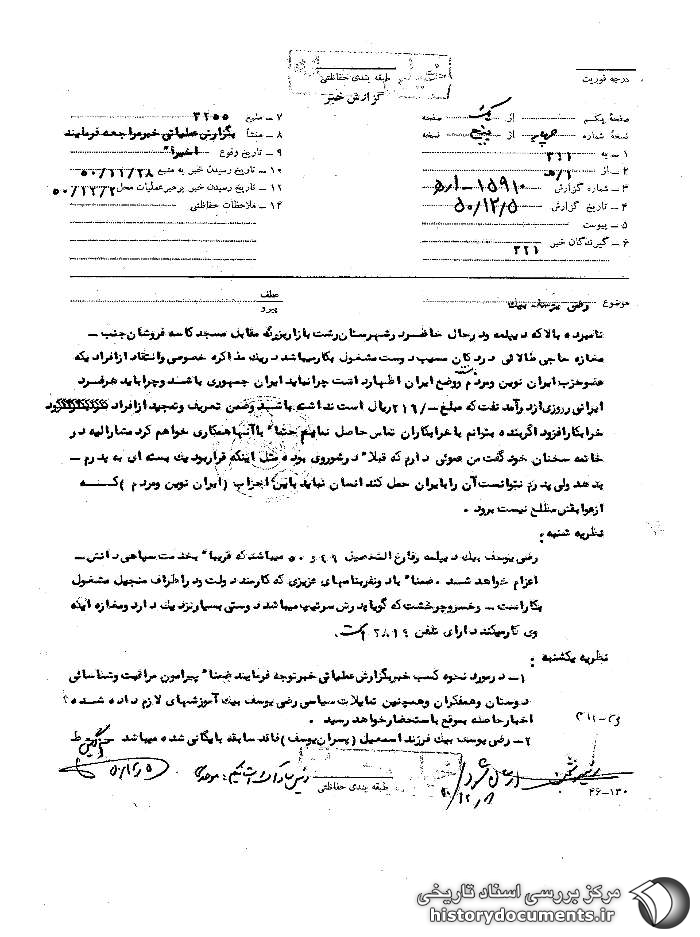 درجه فوریت
طبقه بندی حفاظتی
گزارش خبر
صفحه یکم از یک صفحه
نسخه شماره چهار از پنج نسخه
۱ – به ۳۲۱
۲ – از ۱/ه
۳ – شماره گزارش ۱۵۹۱۰/ه۱
۴ – تاریخ گزارش ۵۰/۱۲/۵
۵ – پیوست
۶ – گیرندگان خبر ۳۲۱
۷ – منبع ۳۲۵۵
۸ – منشأ بگزارش عملیاتی خبر مراجعه فرمایند
۹ – تاریخ وقوع اخیرا"
۱۰ – تاریخ رسیدن خبر به منبع ۵۰/۱۱/۲۸
۱۲ – تاریخ رسیدن خبر برهبر عملیات محل ۵۰/۱۲/۲
۱۴ – ملاحظات حفاظتی
موضوع رضی یوسف بیک
عطف
پیرو
نامبرده بالا که دیپلمه و در حال حاضر در شهرستان رشت بازار بزرگ مقابل مسجد کاسه فروشان جنب –
مغازه حاجی طلائی در دکان مسیب دوست مشغول بکار میباشد در یک مذاکره خصوصی و انتقاد از افرادیکه
عضو حزب ایران نوین و مردم و وضع ایران اظهار داشته است چرا نباید ایران جمهوری باشد و چرا باید هر فرد
ایرانی روزی از درآمد نفت که مبلغ –/۲۱۶ ریال است نداشته باشد و ضمن تعریف و تمجید از افراد
خرابکار افزود اگر بنده بتوانم با خرابکاران تماس حاصل نمایم حتما" با آنها همکاری خواهم کرد مشارالیه در
خاتمه سخنان خود گفت من عموئی دارم که قبلا" در شوروی بوده مثل اینکه قرار بود یک بسته ای به پدرم –
بدهد ولی پدرم نتوانست آن را بایران حمل کند انسان نباید باین احزاب (ایران نوین و مردم) که
از عواقبش مطلع نیست برود .
نظریه شنبه :
رضی یوسف بیک دیپلمه و فارغ التحصیل ۴۹ و ۵۰ میباشد که قریبا" بخدمت سپاهی دانش –
اعزام خواهد شد . ضمنا" با دو نفر بنامهای عزیزی که کارمند دولت و در اطراف منجیل مشغول
بکار است – و خسرو چرخشت که گویا پدرش سرتیپ میباشد دوستی بسیار نزدیک دارد و مغازه ایکه
وی کار میکند دارای تلفن ۲۸۱۹ است.
نظریه یکشنبه :
۱– در مورد نحوه کسب خبر بگزارش عملیاتی خبر توجه فرمایند ضمنا" پیرامون مراقبت و شناسائی
دوستان و همفکران و همچنین تمایلات سیاسی رضی یوسف بیک آموزشهای لازم داده شده
اخبار حاصله بموقع باستحضار خواهد رسید .
۲– رضی یوسف بیک فرزند اسمعیل (پسران یوسف) فاقد سابقه بایگانی شده میباشد
طبقه بندی حفاظتی
۴۶–۱۳۰
مرکز بررسی اسناد تاریخی
historydocuments.ir